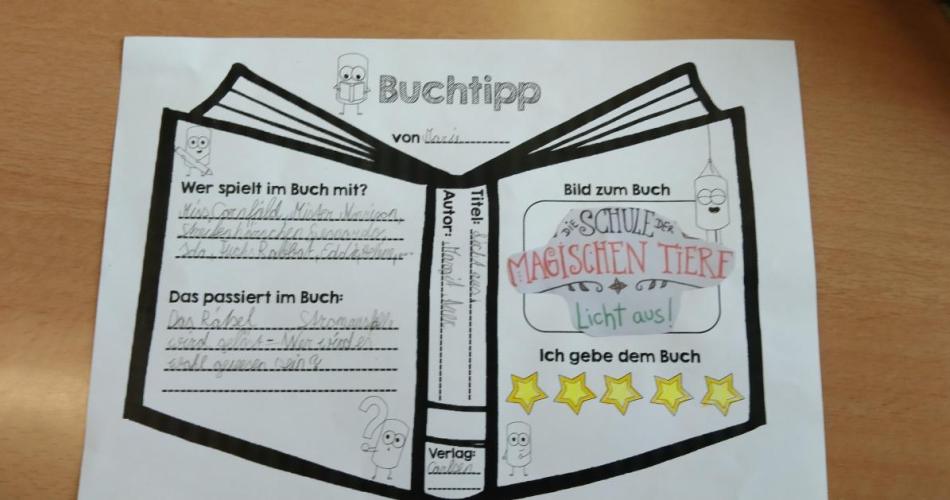 Buchtipp
von Marie
Wer spielt im Buch mit?
Miss Cornfield, Mister Morrison,
Ida,
Das passiert im Buch:
Das Rätsel
wird gelöst - Wer
wohl gewesen sein?
Titel: Licht aus!
Autor: Margit Auer
Verlag:
Carlsen
Bild zum Buch
DIE SCHULE DER
MAGISCHEN TIERE
Licht aus!
Ich gebe dem Buch